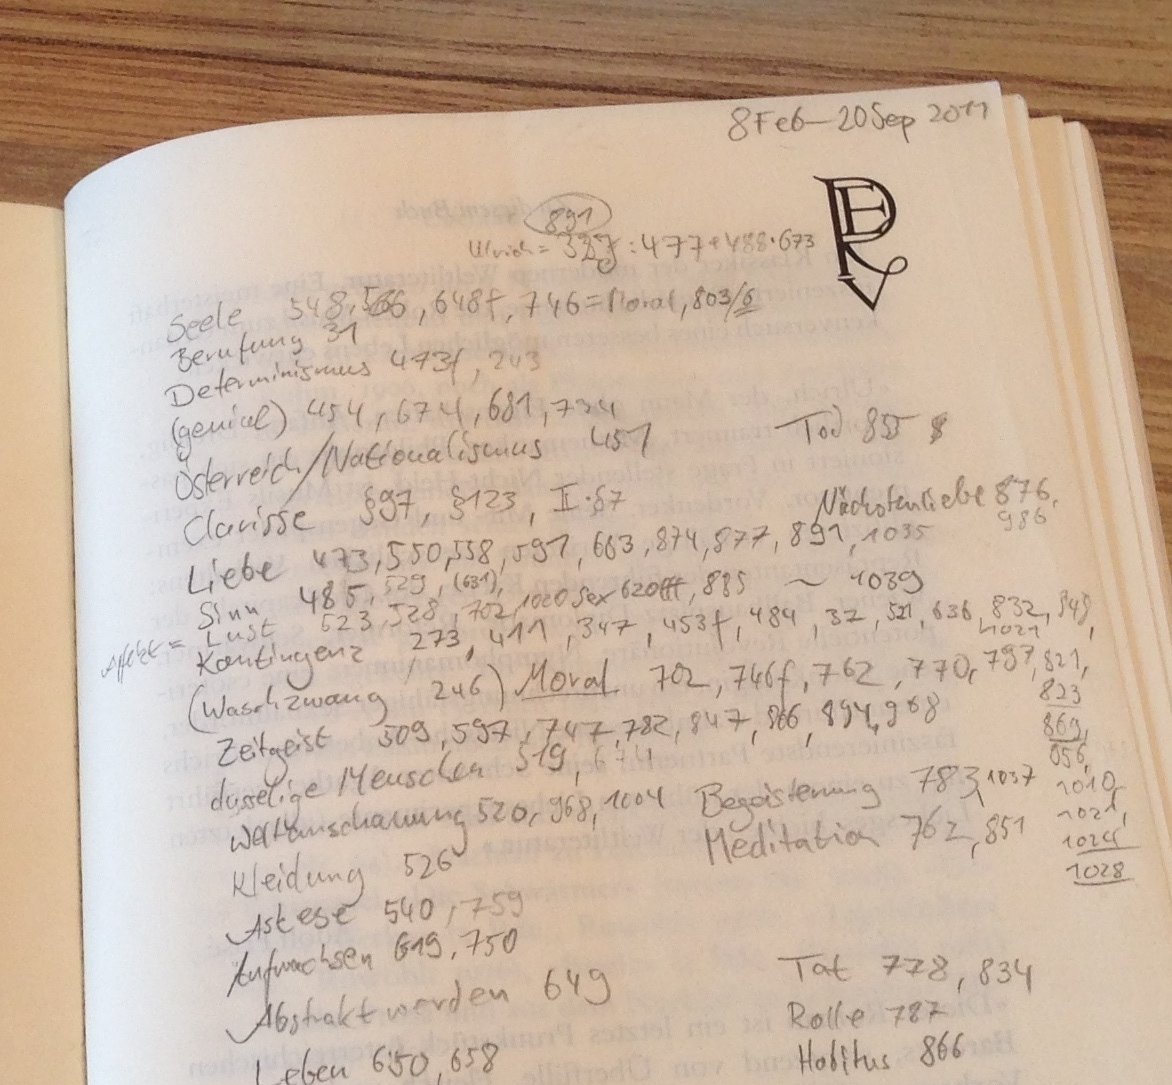 8 Feb – 20 Sep 2011
891
Ulrich = 327 : 477 + 488 · 673
Seele 548, 566, 648f, 746 = Moral, 803/6
Berufung 31
Determinismus 473f, 243
(genial) 454, 674, 681, 734
Österreich/Nationalismus 451
Tod 855
Clarisse §97, §123, II·§7
Nächstenliebe 876,
986
Liebe 473, 550, 558, 591, 663, 874, 877, 891, 1035
Sinn 485, 529, (631), Sex 620ff, 885 ~ 1039
Lust 523, 528, 702, 1020
Kontingenz 273, 411, 347, 453f, 484, 37, 521, 636, 832, 849,
1021
(Waschzwang 246) Moral 702, 746f, 762, 770, 797, 821,
823
869,
Zeitgeist 509, 597, 747 782, 847, 866, 894, 968
dusselige Menschen 519, 644
Weltanschauung 520, 968, 1004
Begeisterung 783, 1037
1010,
1021,
Kleidung 526
Meditation 762, 851
1024
1028
Askese 540, 759
Aufwachsen 619, 750
Abstrakt werden 649
Tat 778, 834
Rolle 787
Leben 650, 658
Habitus 866